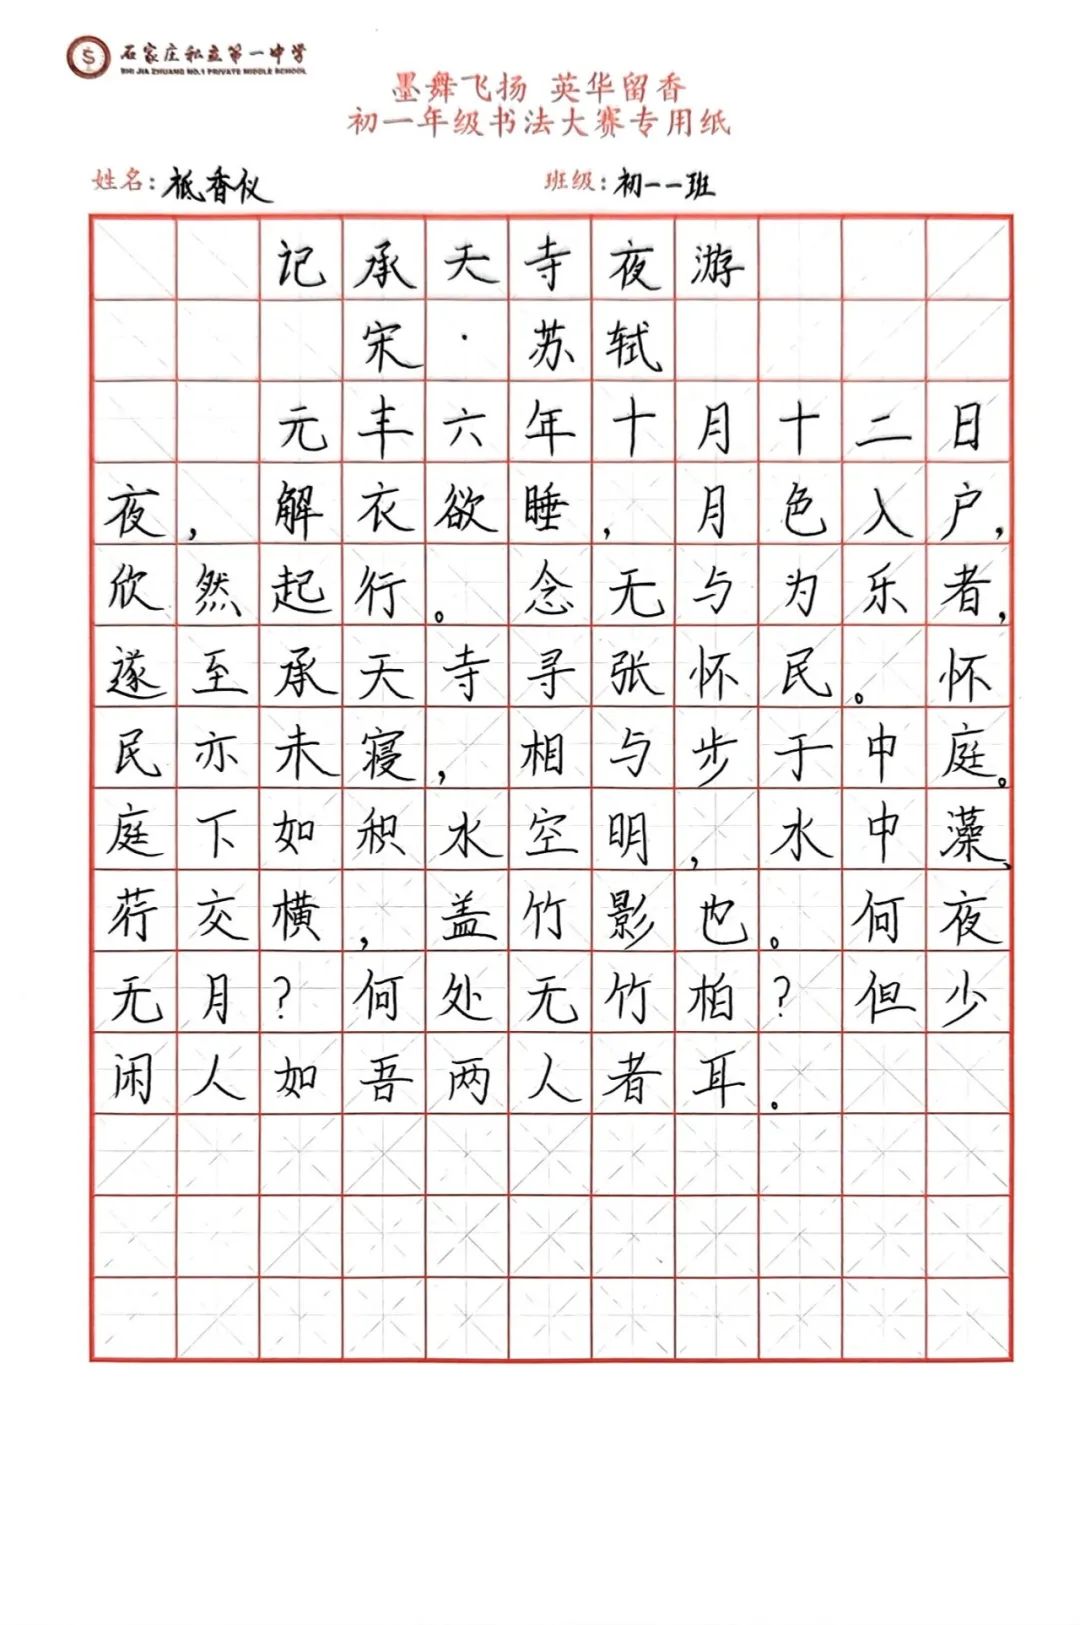 石家庄私立第一中学
SHI JIA ZHUANG NO.1 PRIVATE MIDDLE SCHOOL
墨舞飞扬 英华留香
初一年级书法大赛专用纸
姓名:柢香仪 班级:初一一班
记承天寺夜游
宋·苏轼
元丰六年十月十二日
夜,解衣欲睡,月色入户,
欣然起行。念无与为乐者,
遂至承天寺寻张怀民。怀
民亦未寝,相与步于中庭。
庭下如积水空明,水中藻、
荇交横,盖竹影也。何夜
无月?何处无竹柏?但少
闲人如吾两人者耳。